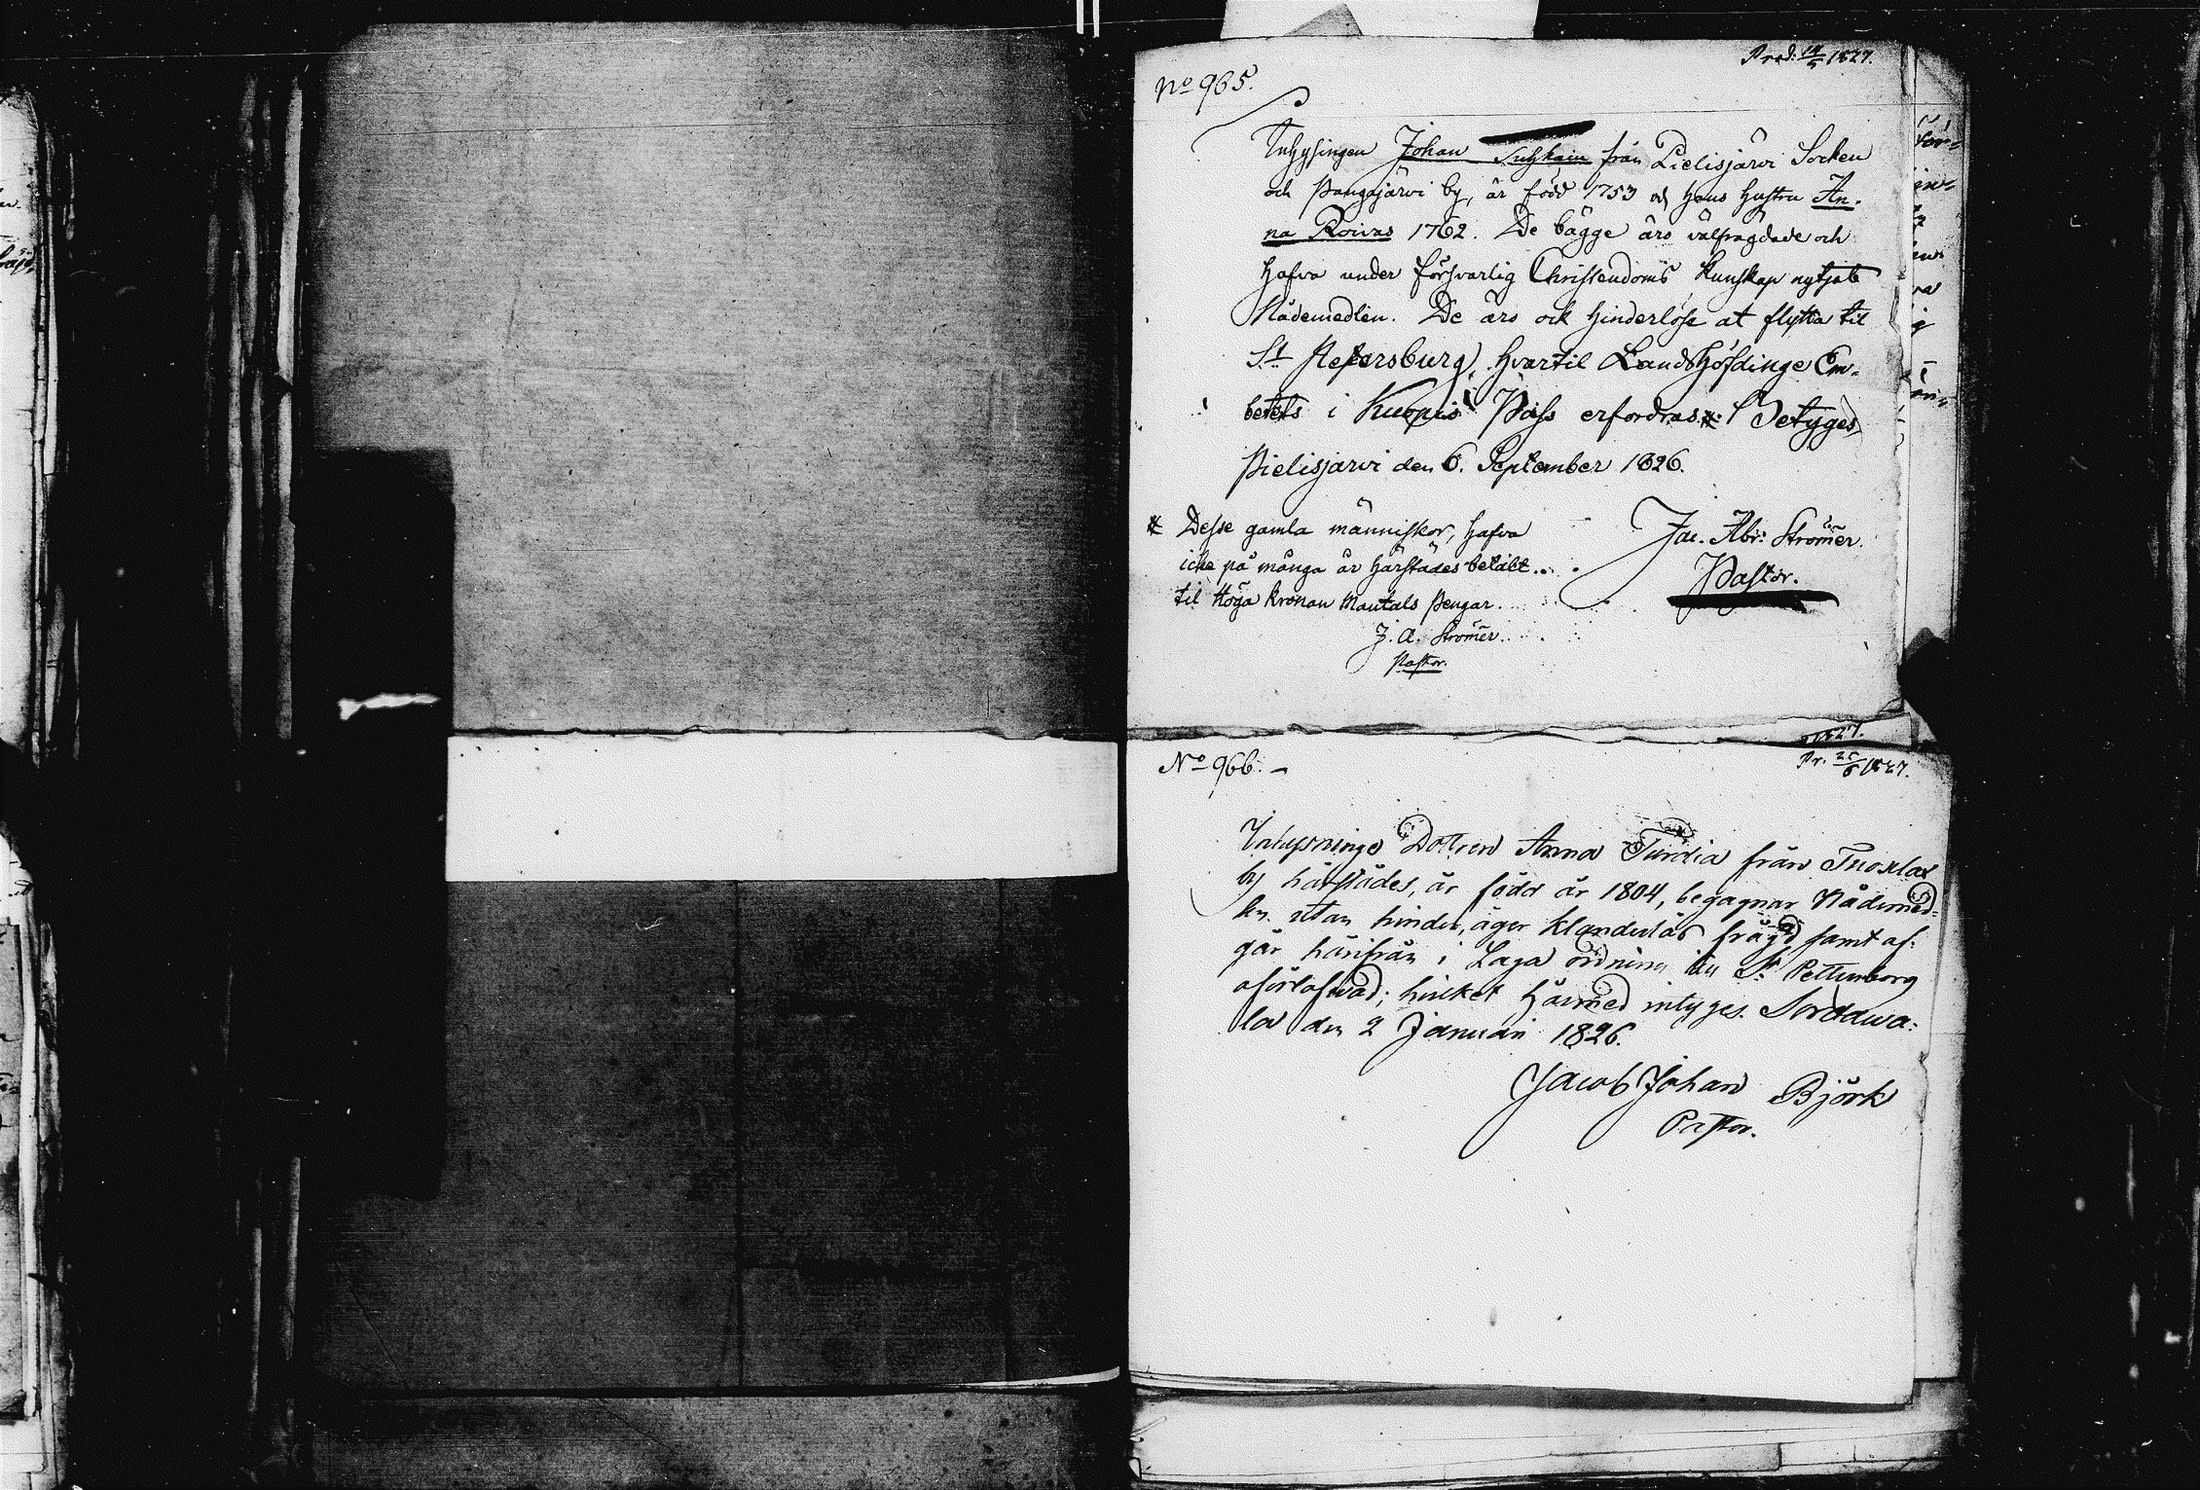 No 965.
Prod: 14/5 1827.
Inhysingen Johan från Pielisjärvi Socken
och Pangajärvi by, är född 1753 och hans hustru An-
na Roivas 1762. De bägge äro välfrägdade och
hafva under försvarlig Christendoms Kunskap nytjat
Nådemedlen. De äro ock hinderlöse at flytta til
St Petersburg, hvartil Landshöfdinge Em-
betets i Kuopio Pass erfordras.* Betyges,
Pielisjärvi den 6. September 1826.
Jac. Abr: Stromér.
Pastor.
* Desse gamla människor, hafva
icke på många år härstädes betalt
til Höga Kronan Mantals Pengar.
J. A. Stromér.
Pastor.
No 966. –
1827.
Pr. 25/6 1827.
Inhysninge Dottren Anna från
by härstädes, är född år 1804, begagnar Nådemed-
len utan hinder, äger klanderlös frägd samt af-
går härifrån i Laga ordning til St Pettersborg
oförlofwad; hvilket härmed intyges. Sordawa-
la den 2 Januari 1826.
Jacob Johan Björk
Pastor.